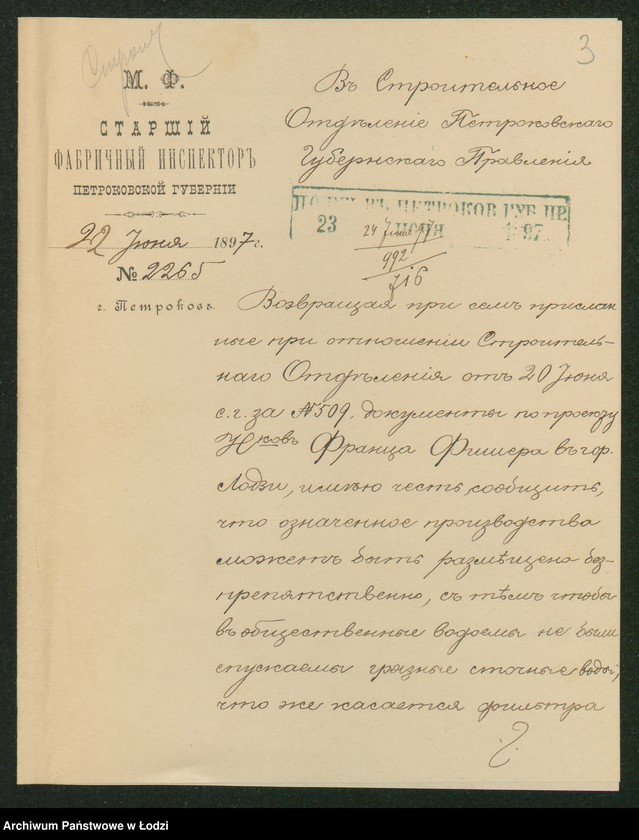 3
М. Ф.
СТАРШІЙ
ФАБРИЧНЫЙ ИНСПЕКТОРЪ
ПЕТРОКОВСКОЙ ГУБЕРНІИ
22 Іюня 1897 г.
№ 2265
г. Петроковъ.
Въ Строительное
Отдѣленіе Петроковскаго
Губернскаго Правленія
ВЪ ПЕТРОКОВ ГУБ. ПР.
23 ІЮНЯ 1897
24
992
716
Возвращая при семъ прислан
ные при отношеніи Строитель-
наго Отдѣленія отъ 20 Іюня
с.г. за №509, документы по проекту
Н-ковъ Франца Фишера въ гор.
Лодзи, имѣю честь сообщить,
что означенное производства
можетъ быть размѣщено без-
препятственно, съ тѣмъ чтобы
въ общественные водоемы не были
спускаемы грязные сточные воды;
что же касается фильтра
Archiwum Państwowe w Łodzi